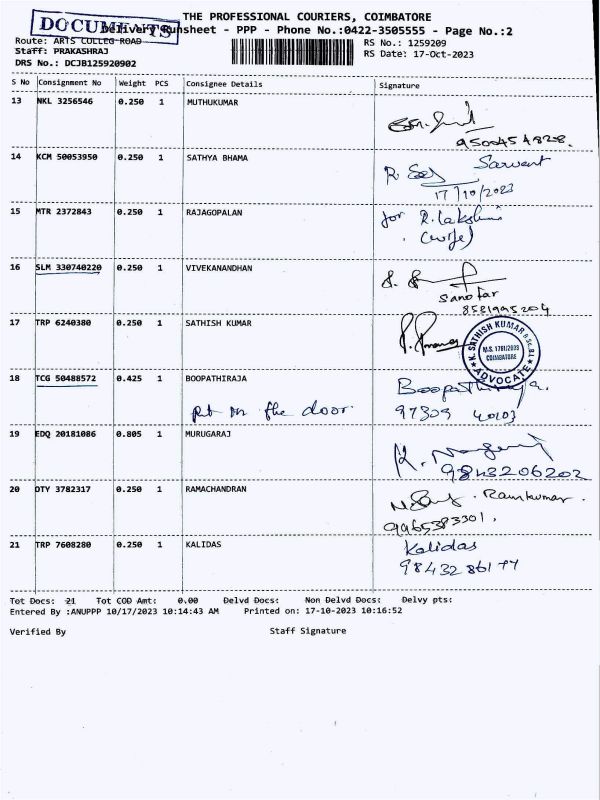 THE PROFESSIONAL COURIERS, COIMBATORE
DOCUMENTS
Delivery Runsheet - PPP - Phone No.:0422-3505555 - Page No.:2
Route: ARTS COLLEG ROAD
Staff: PRAKASHRAJ
DRS No.: DCJB125920902
RS No.: 1259209
RS Date: 17-Oct-2023
S No Consignment No Weight PCS Consignee Details Signature
13 NKL 3256546 0.250 1 MUTHUKUMAR
9500454828.
14 KCM 50053950 0.250 1 SATHYA BHAMA
Sarvent
17/10/2023
15 MTR 2372843 0.250 1 RAJAGOPALAN
for R. Lakshmi
(wife)
16 SLM 330740220 0.250 1 VIVEKANANDHAN
8581995204
17 TRP 6240380 0.250 1 SATHISH KUMAR
K. SATHISH KUMAR
COIMBATORE
ADVOCATE
18 TCG 50488572 0.425 1 BOOPATHIRAJA
Boopathiraja.
Put on the door.
97309 40203
19 EDQ 20181086 0.805 1 MURUGARAJ
9843206202
20 OTY 3782317 0.250 1 RAMACHANDRAN
Ramkumar.
9965383301.
21 TRP 7608280 0.250 1 KALIDAS
Kalidas
98432 86177
Tot Docs: 21 Tot COD Amt: 0.00 Delvd Docs: Non Delvd Docs: Delvy pts:
Entered By :ANUPPP 10/17/2023 10:14:43 AM Printed on: 17-10-2023 10:16:52
Verified By Staff Signature